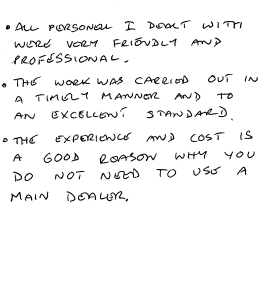 • ALL PERSONEL I DEALT WITH
WERE VERY FRIENDLY AND
PROFESSIONAL.
• THE WORK WAS CARRIED OUT IN
A TIMELY MANNER AND TO
AN EXCELLENT STANDARD.
• THE EXPERIENCE AND COST IS
A GOOD REASON WHY YOU
DO NOT NEED TO USE A
MAIN DEALER.